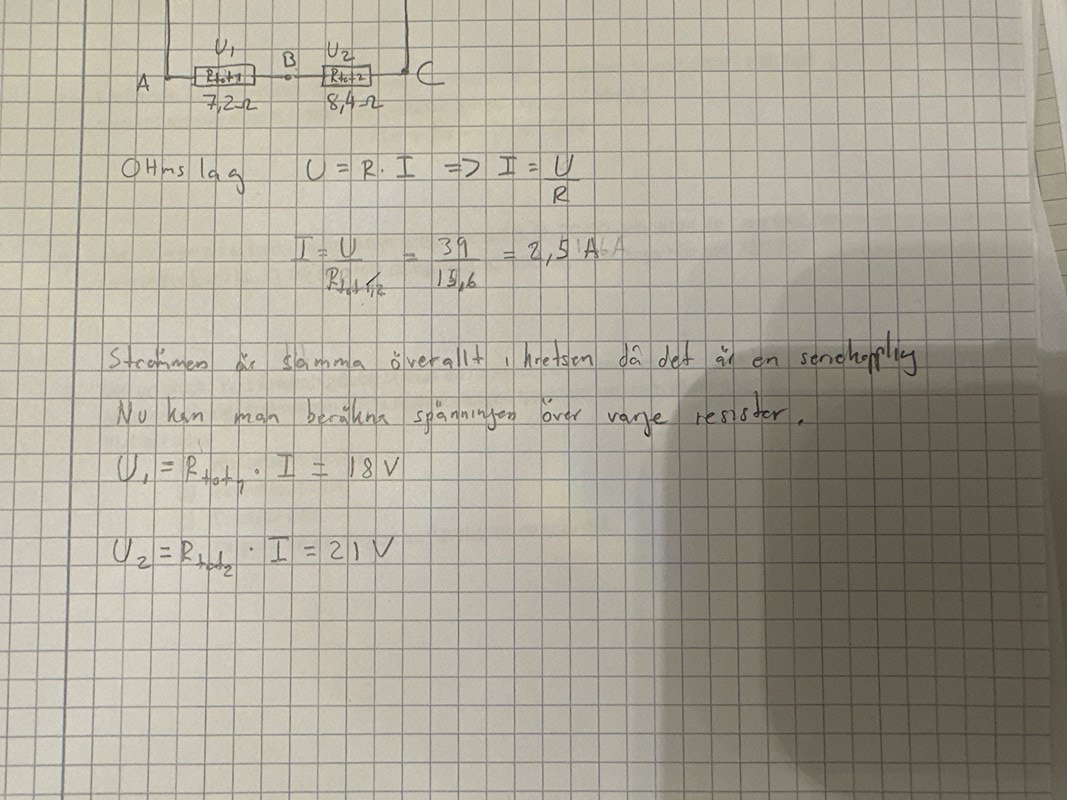 U₁ B U₂
A Rtot1 Rtot2 C
7,2Ω 8,4Ω
OHms lag U = R · I => I = U/R
I = U/Rtot1,2 = 39/15,6 = 2,5 A
Strömmen är samma överallt i kretsen då det är en seriekopplig
Nu kan man beräkna spänningen över varje resistor.
U₁ = Rtot1 · I = 18 V
U₂ = Rtot2 · I = 21 V